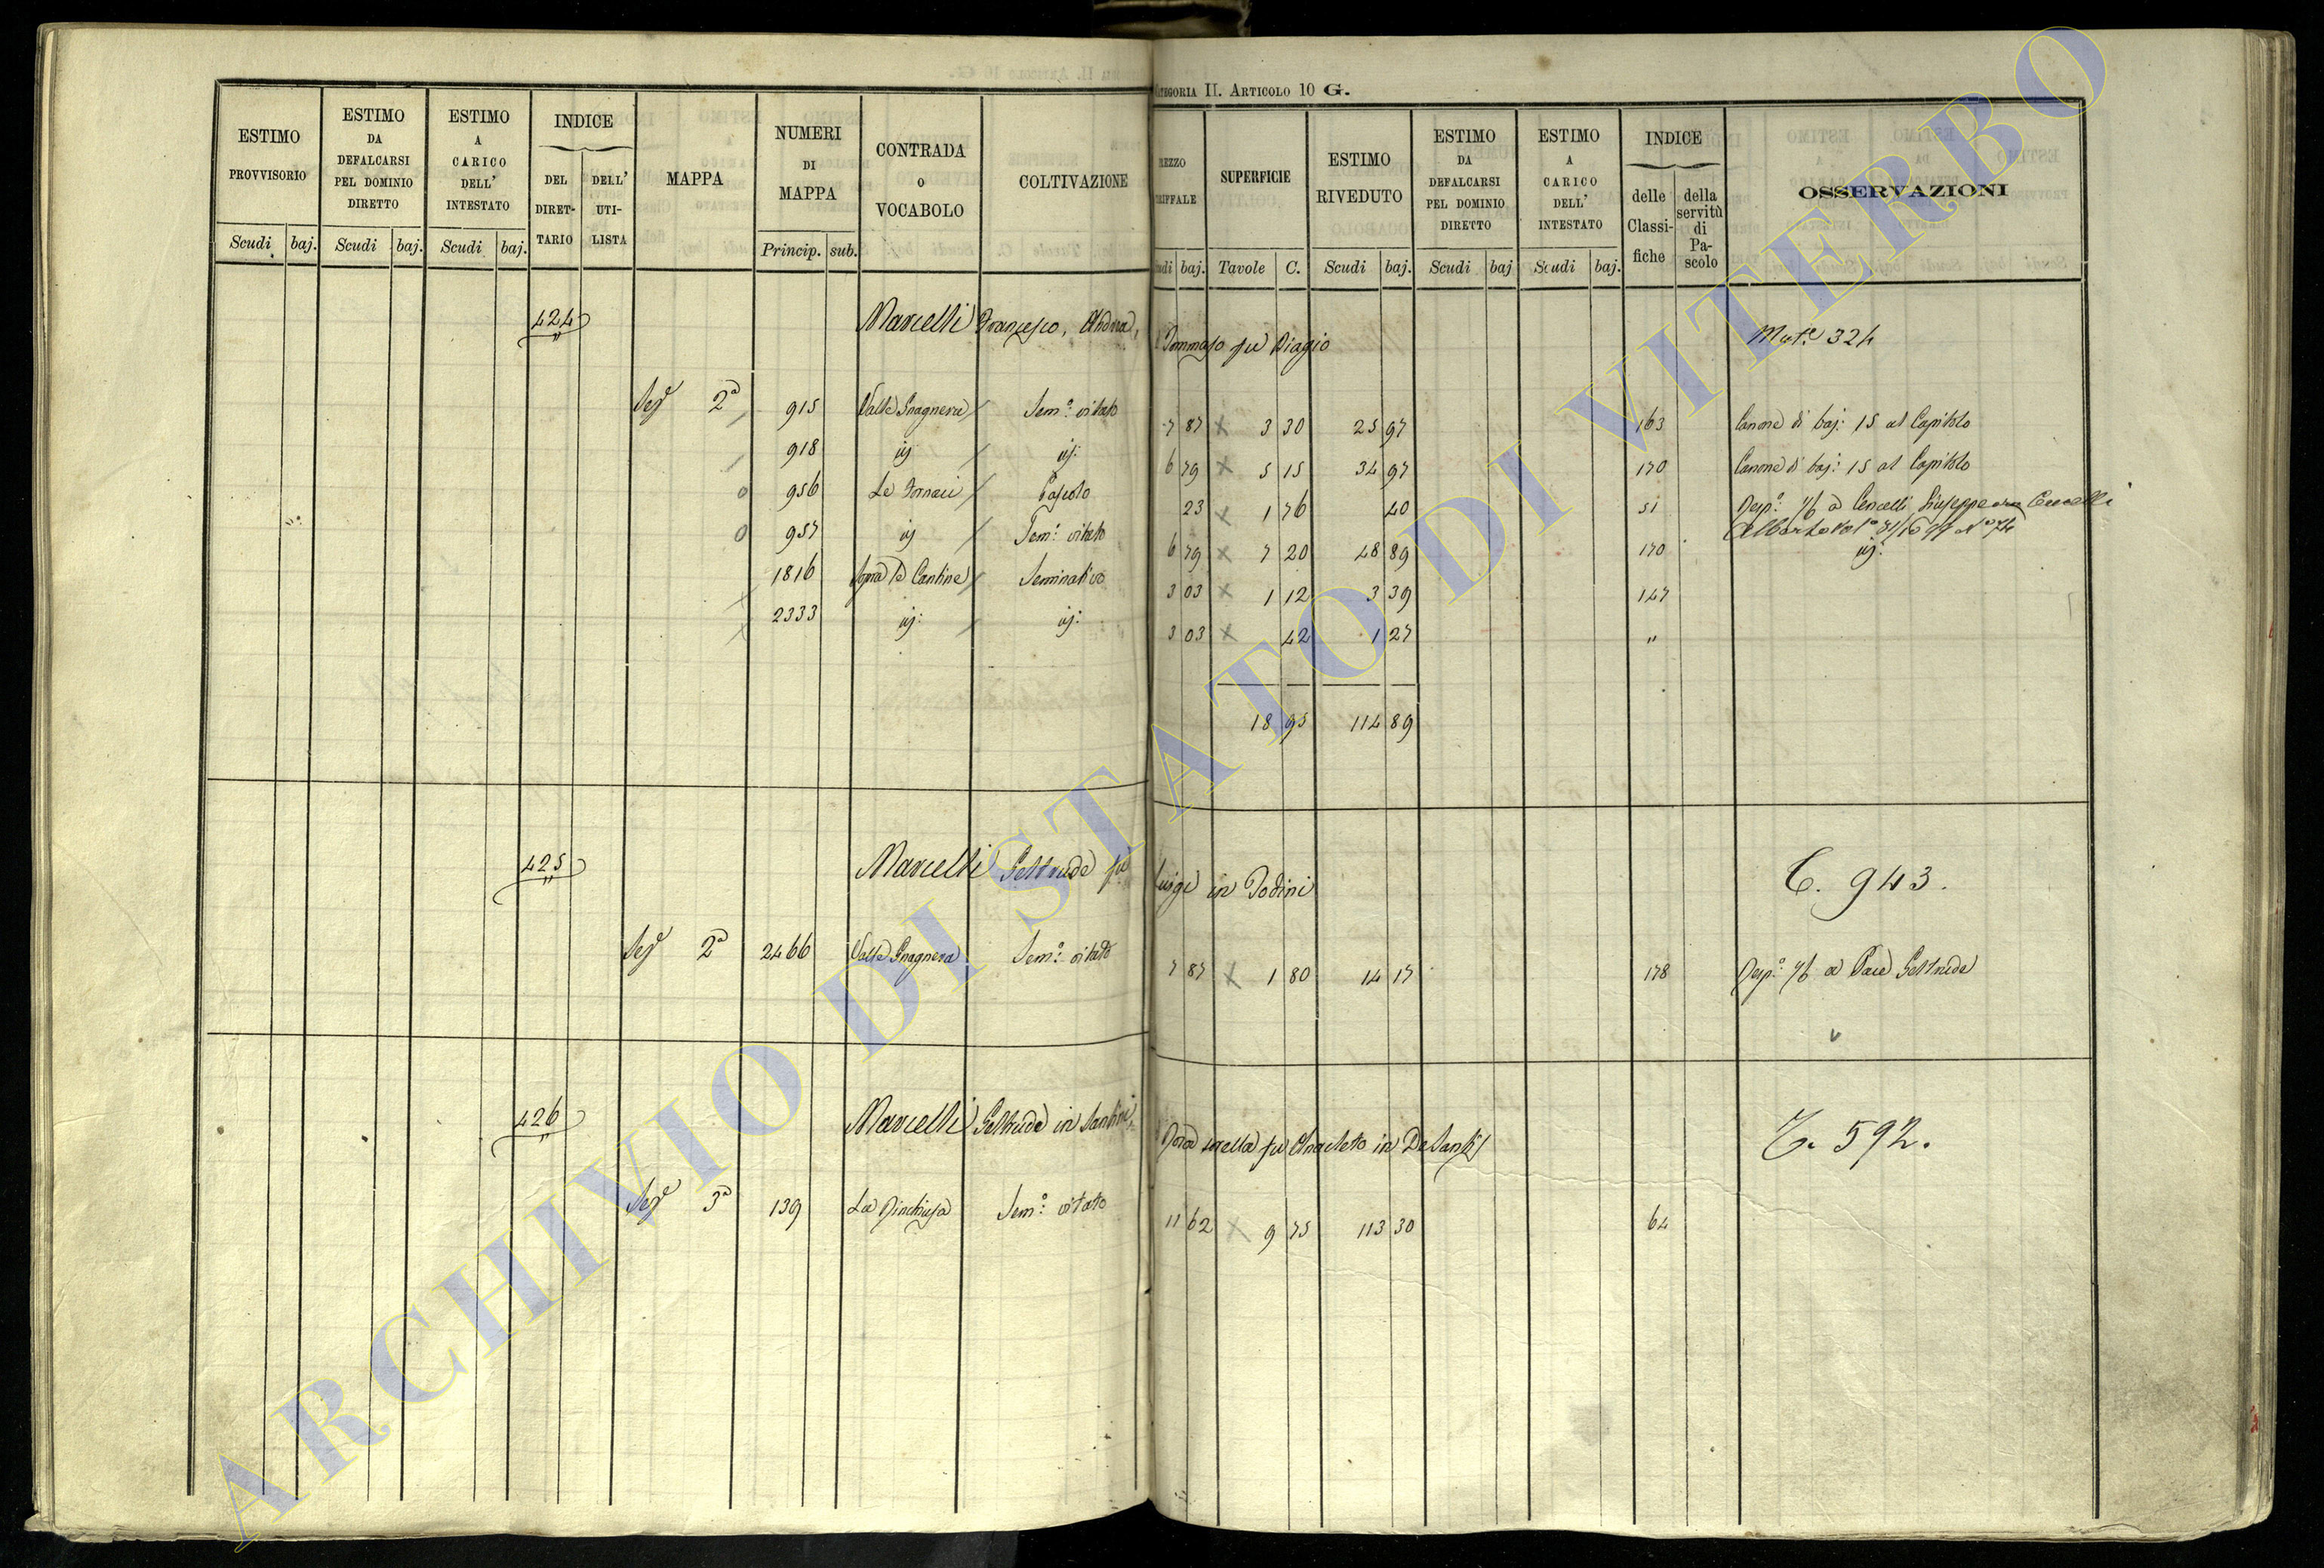 CATEGORIA II. ARTICOLO 10 G.
ESTIMO PROVVISORIO
ESTIMO DA DEFALCARSI PEL DOMINIO DIRETTO
ESTIMO A CARICO DELL' INTESTATO
INDICE
DEL DIRET-TARIO
DELL' UTI-LISTA
MAPPA
NUMERI DI MAPPA
CONTRADA O VOCABOLO
COLTIVAZIONE
Scudi baj. Scudi baj. Scudi baj. Princip. sub.
SUPERFICIE
ESTIMO RIVEDUTO
ESTIMO DA DEFALCARSI PEL DOMINIO DIRETTO
ESTIMO A CARICO DELL' INTESTATO
INDICE
delle Classi-fiche
della servitù di Pa-scolo
OSSERVAZIONI
baj. Tavole C. Scudi baj. Scudi baj Scudi baj.
424 Marcelli Francesco, Andrea, Tommaso fu Biagio Mut.e 324
Sez.e 2a 915 Valle Gragnera Sem.o vitato 7 87 3 30 25 97 163 Canone di baj: 15 al Capitolo
918 iij iij: 6 79 5 15 34 97 170 Canone di baj: 15 al Capitolo
956 Le Fornaci Pascolo 23 1 76 40 51 a Cencelli Giuseppe
957 iij Sem.o vitato 6 79 7 20 48 89 170 iij:
1816 Sopra le Cantine Seminativo 3 03 1 12 3 39 147
2333 iij: iij: 3 03 42 1 27 "
18 95 114 89
425 Marcelli Geltrude fu Luigi in Todini C. 943.
Sez.e 2a 2466 Valle Gragnera Sem.o vitato 7 87 1 80 14 17 178 a Pace Geltrude
426 Marcelli Geltrude in Santini, sorella fu Anacleto in DeSantis 592.
Sez.e 3a 139 La Sem.o vitato 11 62 9 75 113 30 64
ARCHIVIO DI STATO DI VITERBO